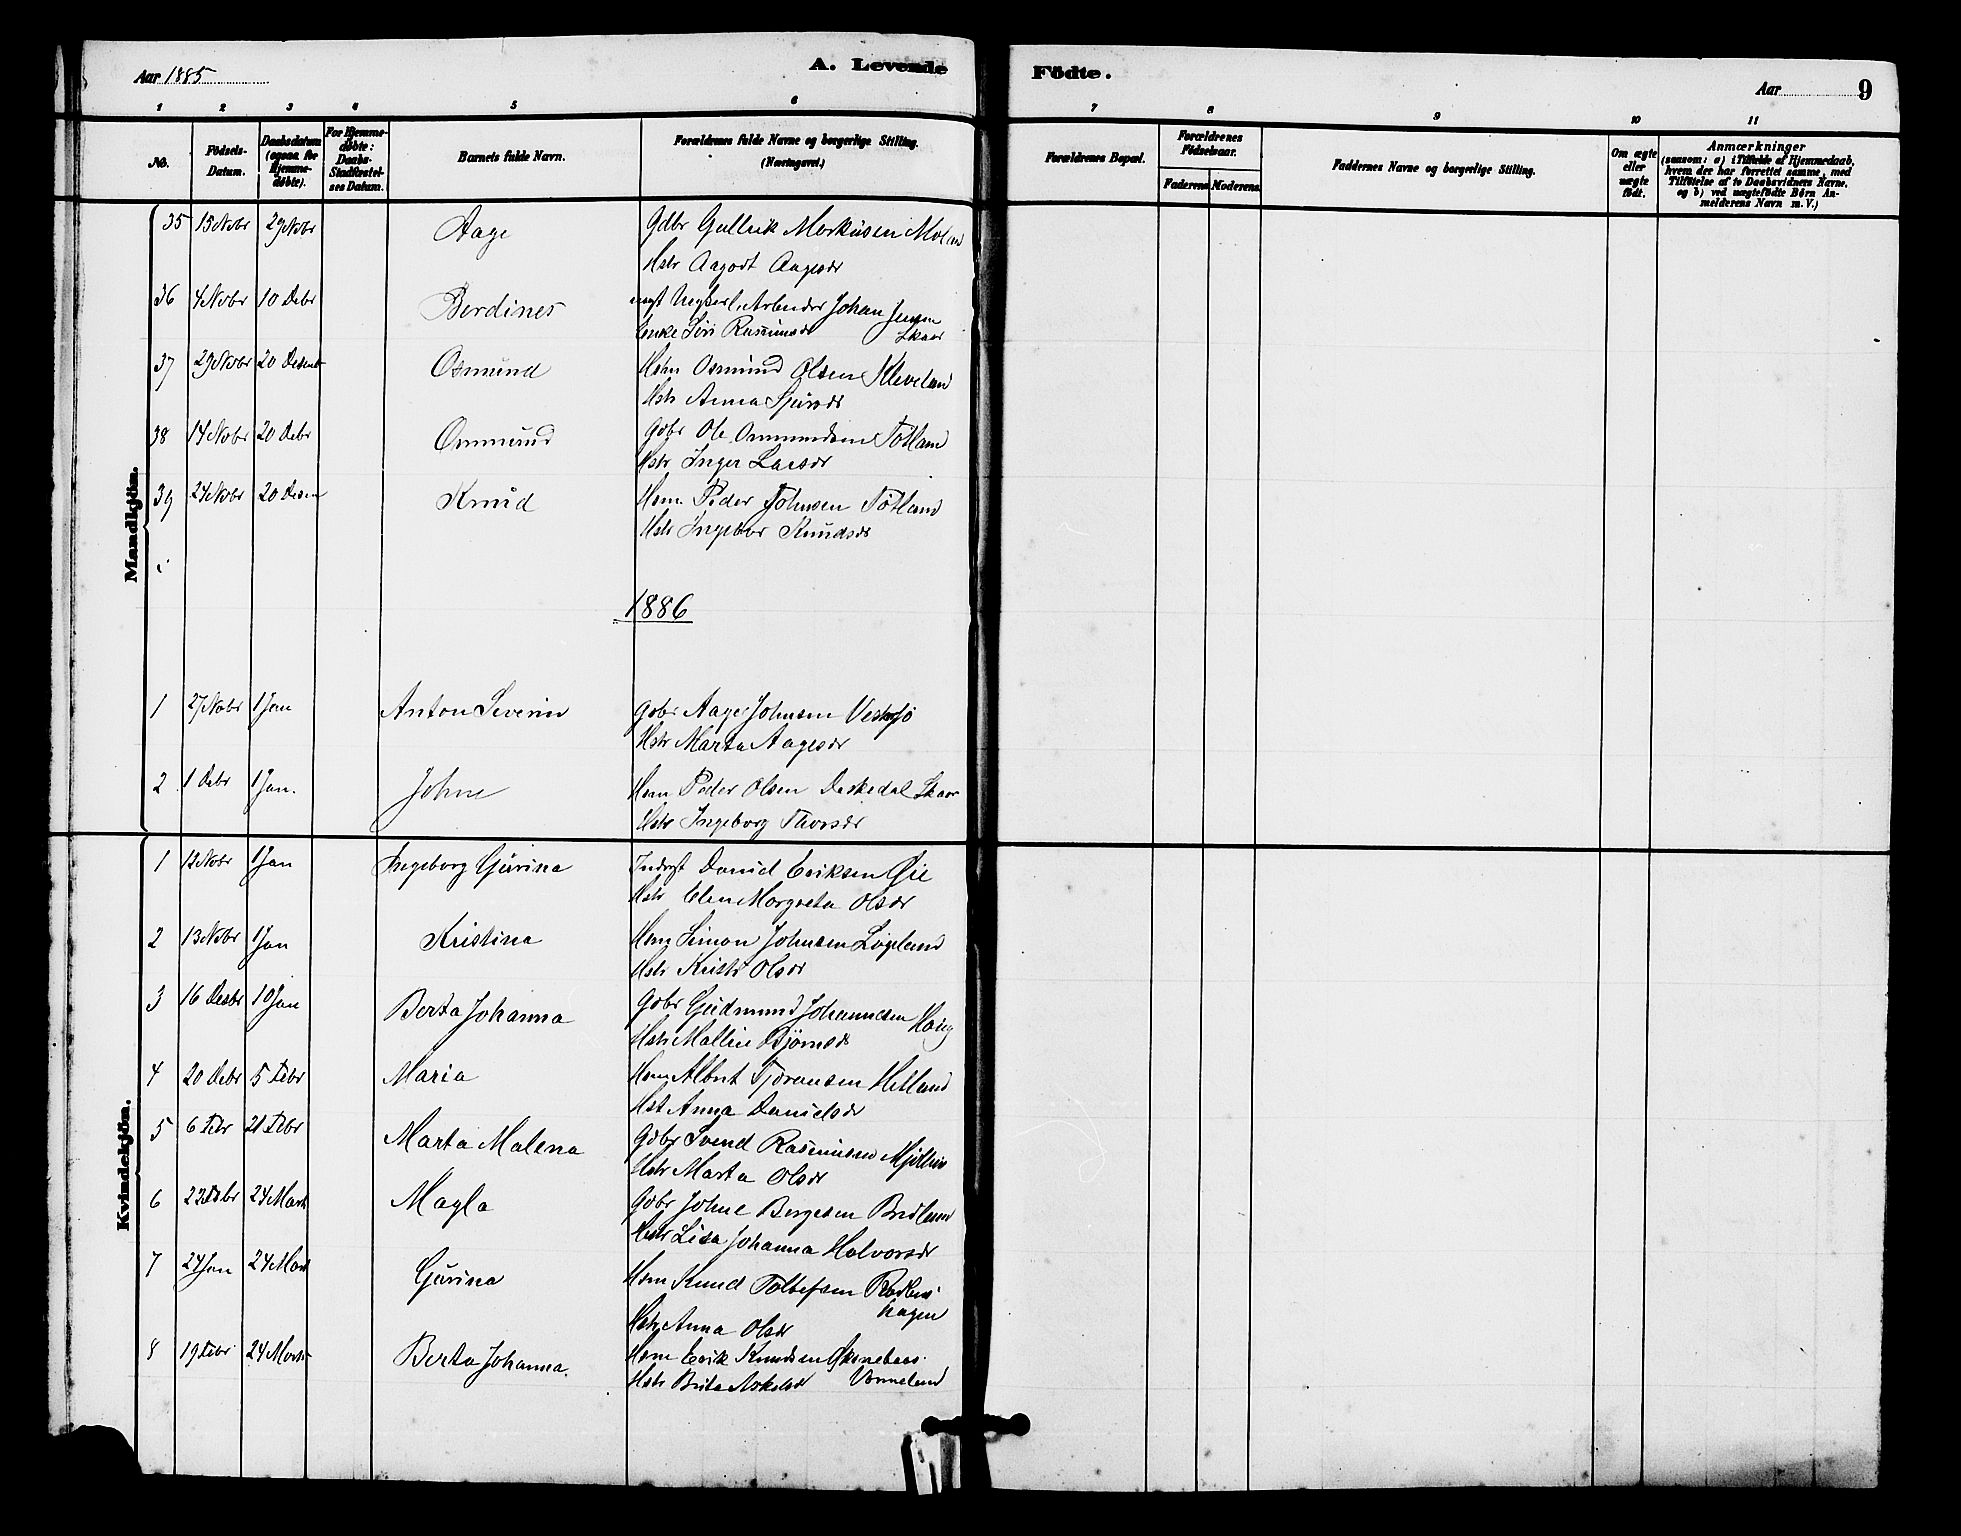 Aar 1885
A. Levende
Födte.
Aar
9
1 2 3 4 5 6 7 8 9 10 11
No.
Födsels-Datum.
Daabsdatum (ogsaa for Hjemme-døbte).
For Hjemme-døbte: Daabs-Stadfæstel-ses Datum.
Barnets fulde Navn.
Forældrenes fulde Navne og borgerlige Stilling. (Næringsvei.)
Forældrenes Bopæl.
Forældrenes Födselsaar.
Faderens Moderens
Faddernes Navne og borgerlige Stilling.
Om ægte eller uægte födt.
Anmærkninger
(saasom: a) i Tilfælde af Hjemmedaab,
hvem der har forrettet samme, med
Tilföielse af to Daabsvidners Navne,
og b) ved uægtefödte Börn An-
melderens Navn m. V.)
Mandkjön.
35 15 Nobr 29 Nobr Aage Gdbr Gullrik Markusen
Hstr Aagodt Aagesdr
36 4 Nobr 10 Debr Berdines Arbeider Johan Jensen
Enke Siri Rasmusdr Skaar
37 29 Nobr 20 Desemb Osmund Hsm Osmund Olsen Kleveland
Hstr Anna Sjursdr
38 14 Nobr 20 Debr Ommund Gdbr Ole Ommundsen Tötland
Hstr Inger Larsdr
39 24 Nobr 20 Desem Knud Hsm. Peder Johnsen Tötland
Hstr Ingebor Knudsdr
1886
1 27 Nobr 1 Jan Anton Severin Gdbr Aage Johnsen
Hstr Marta Aagesdr
2 1 Debr 1 Jan. Johne Hsm Peder Olsen Skaar
Hstr Ingeborg Thorsdr
Kvindekjön.
1 12 Nobr 1 Jan Ingeborg Gurina Inderst Daniel Eriksen Øie
Hstr Elen Margreta Olsdr
2 13 Nobr 1 Jan Kristina Hsm Simon Johnsen
Hstr Kristi Olsdr
3 16 Desbr 10 Jan Berta Johanna Gdbr Gudmund Johannesen Haug
Hstr Mallene Björnsdr
4 20 Debr 5 Febr Maria Hsm Albert Helland
Hst Anna Danielsdr
5 6 Febr 21 Febr Marta Malena Gdbr Svend Rasmusen
Hstr Marta Olsdr
6 24 Marts Magla Gdbr Johne Bergesen
Hstr Lisa Johanna Halvorsdr
7 24 Jan 24 Mars Gurina Hsm Knud Tollefsen
hagen
Hstr Anna Olsdr
8 19 Febr 24 Marts Berta Johanna. Hsm Erik Knudsen
Hstr Brita Askelsdr